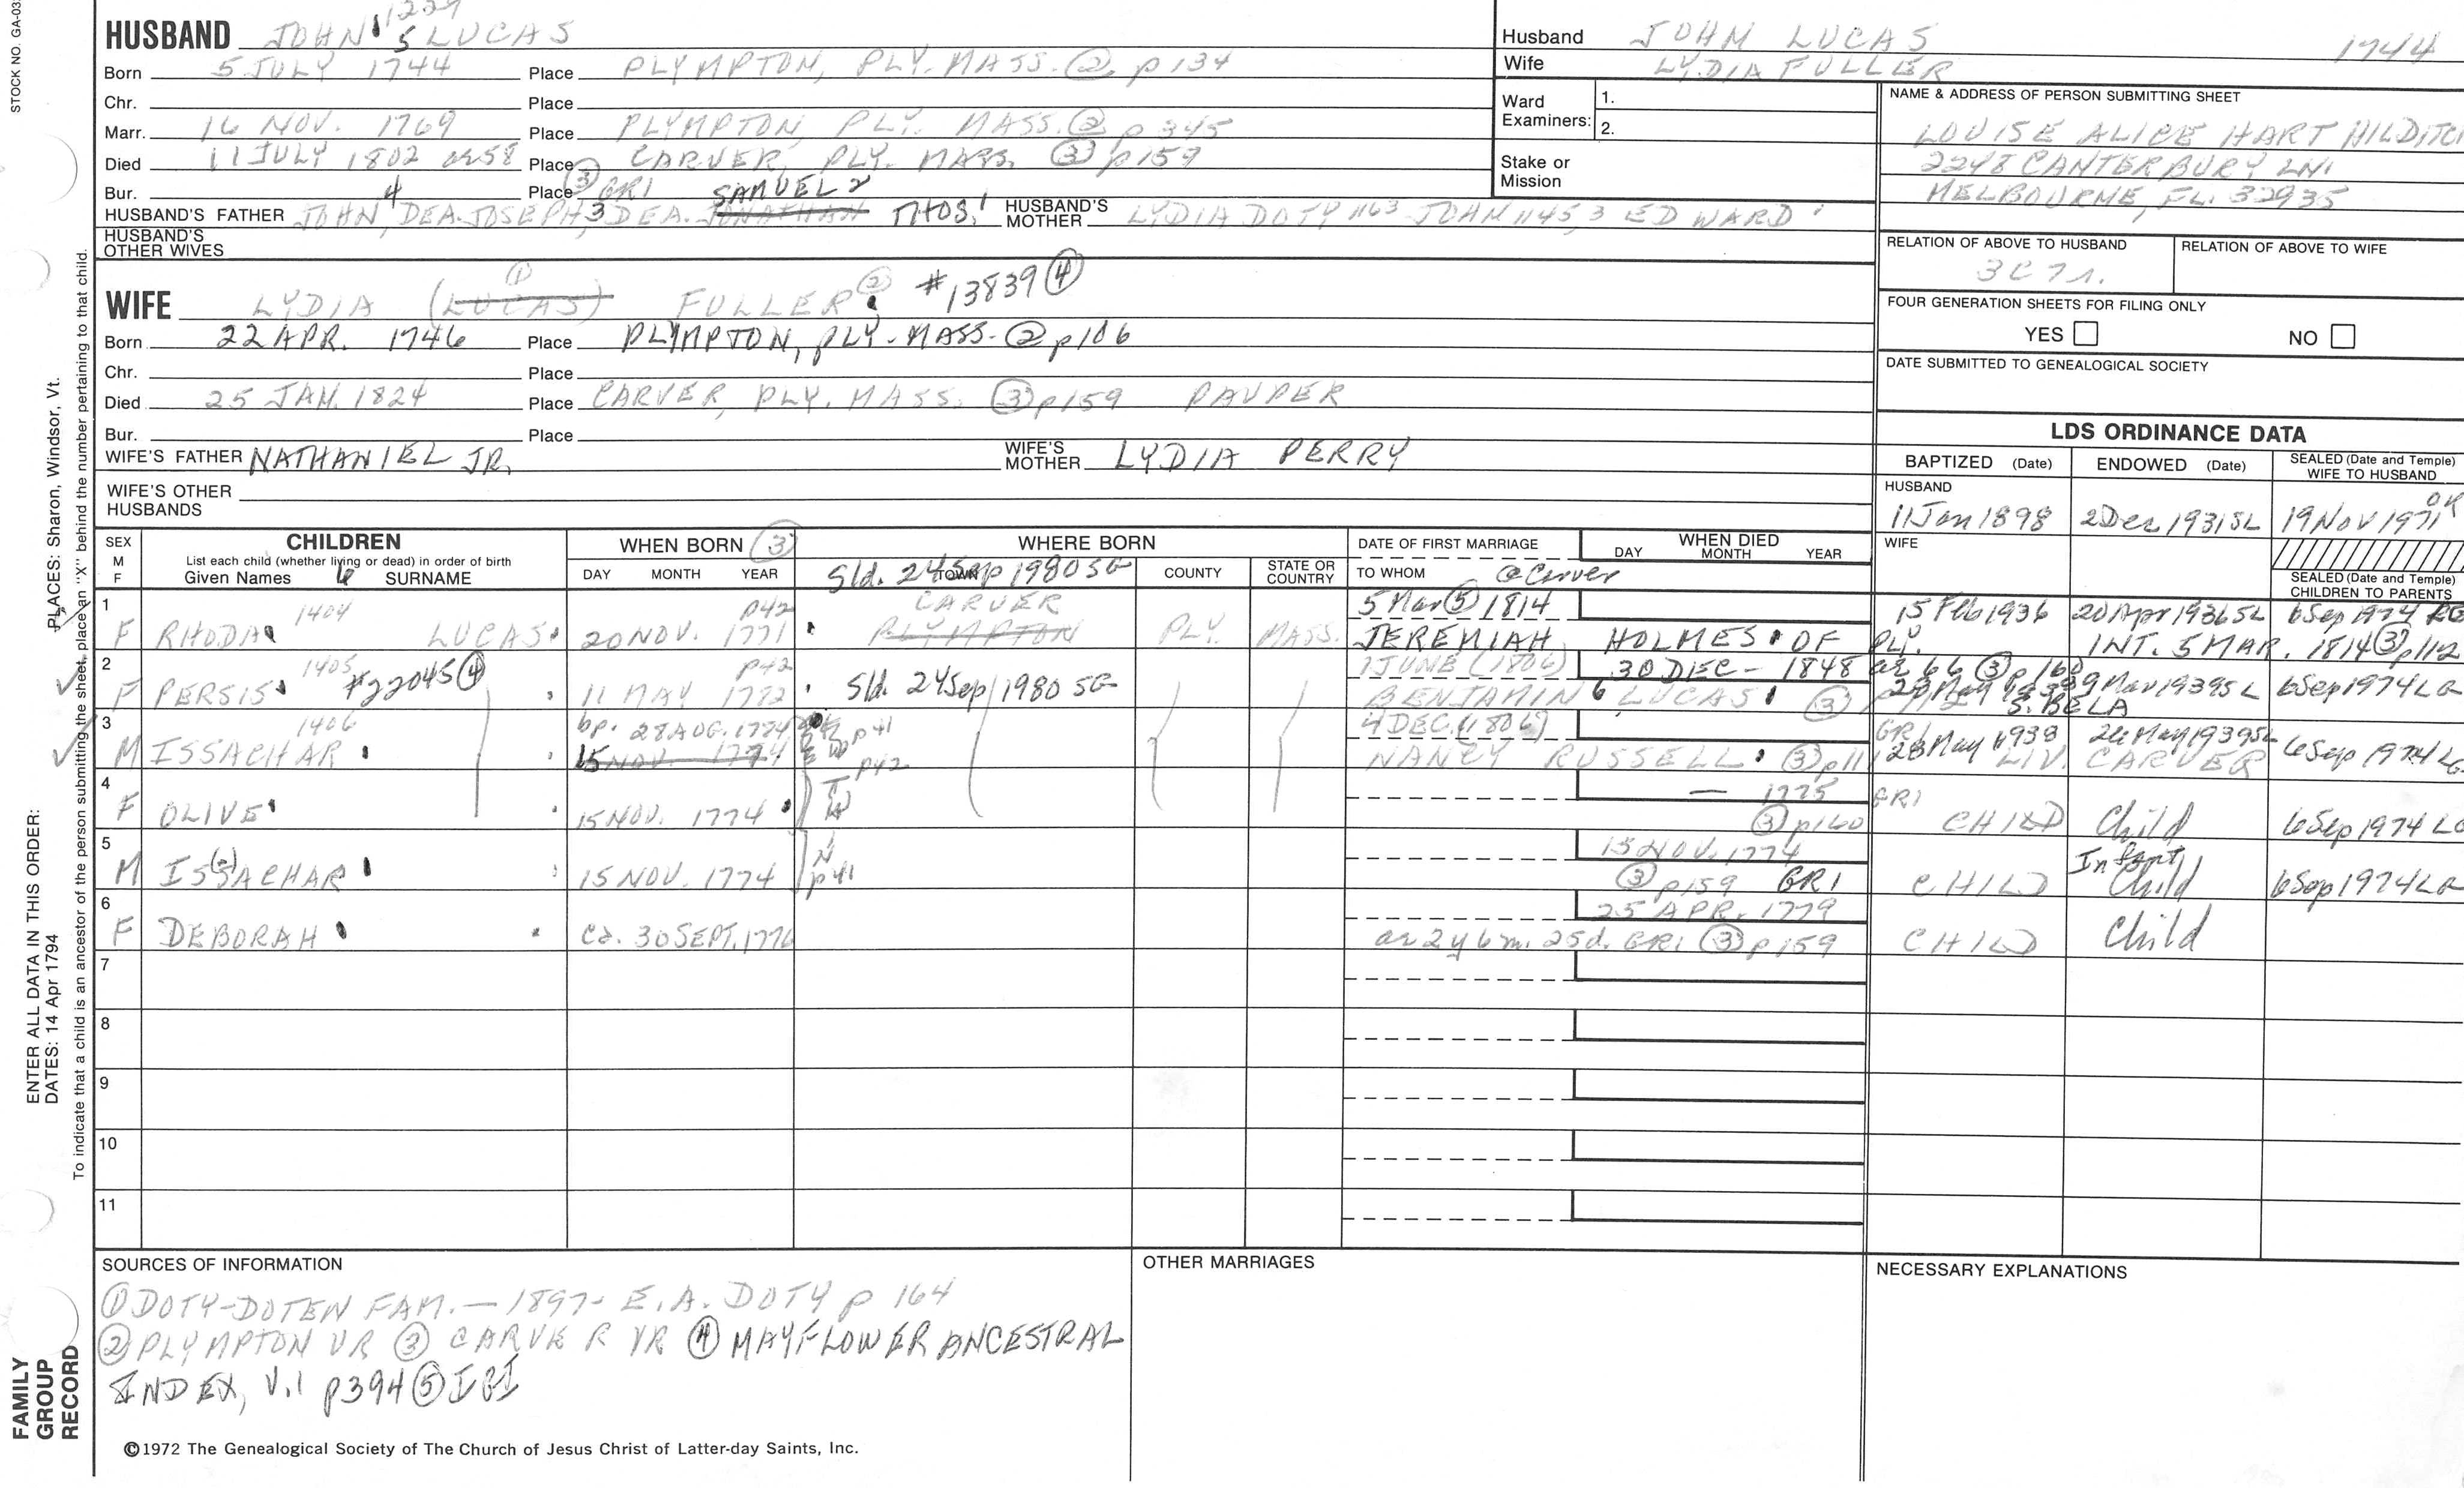 STOCK NO. GA-03
HUSBAND JOHN 5 LUCAS
Born 5 JULY 1744 Place PLYMPTON, PLY. MASS. ② p 134
Chr. Place
Marr. 16 NOV. 1769 Place PLYMPTON, PLY. MASS. ② p 345
Died 11 JULY 1802 ae 58 Place CARVER, PLY. MASS. ③ p 159
Bur. 4 Place ③ GRI SAMUEL 2
HUSBAND'S FATHER JOHN, DEA. JOSEPH, 3 DEA. JONATHAN THOS. 1 HUSBAND'S MOTHER LYDIA DOTY 1163 JOHN 1145, 3 EDWARD 1
HUSBAND'S OTHER WIVES
①
WIFE LYDIA (LUCAS) FULLER ② #13839 ④
Born 22 APR. 1746 Place PLYMPTON, PLY. MASS. ② p 106
Chr. Place
Died 25 JAN. 1824 Place CARVER, PLY. MASS. ③ p 159 PAUPER
Bur. Place
WIFE'S FATHER NATHANIEL JR. WIFE'S MOTHER LYDIA PERRY
WIFE'S OTHER HUSBANDS
Husband JOHN LUCAS 1744
Wife LYDIA FULLER
Ward Examiners: 1.
2.
Stake or Mission
NAME & ADDRESS OF PERSON SUBMITTING SHEET
LOUISE ALICE HART
2248 CANTERBURY LN.
MELBOURNE, FL. 32935
RELATION OF ABOVE TO HUSBAND RELATION OF ABOVE TO WIFE
3C7r.
FOUR GENERATION SHEETS FOR FILING ONLY
YES NO
DATE SUBMITTED TO GENEALOGICAL SOCIETY
LDS ORDINANCE DATA
BAPTIZED (Date) ENDOWED (Date) SEALED (Date and Temple) WIFE TO HUSBAND
HUSBAND
11 Jan 1898 2 Dec 1931 SL 19 Nov 1971 OK
WIFE
SEALED (Date and Temple) CHILDREN TO PARENTS
SEX M F CHILDREN List each child (whether living or dead) in order of birth Given Names 6 SURNAME
WHEN BORN ③ DAY MONTH YEAR
WHERE BORN TOWN COUNTY STATE OR COUNTRY
Sld. 24 Sep 1980 SG
DATE OF FIRST MARRIAGE TO WHOM @ Carver
WHEN DIED DAY MONTH YEAR
1 1404 p42 CARVER 5 Mar ⑤ 1814 15 Feb 1936 20 Apr 1936 SL 6 Sep 1974
F RHODA LUCAS 20 NOV. 1771 PLYMPTON PLY. MASS. JEREMIAH HOLMES OF PLY. INT. 5 MAR. 1814 ③ p112
2 1405 p42 1 JUNE (1806) 30 DEC - 1848 ae 66 ③ p 160
F PERSIS #22045 ④ 11 MAY 1772 Sld. 24 Sep 1980 SG BENJAMIN 6 LUCAS ③ S. BELA 9 Mar 1939 SL 6 Sep 1974 LG
3 1406 bp. 28 AUG. 1774 p41 4 DEC. (1806) GRI
M ISSACHAR 15 NOV. 1774 NANCY RUSSELL ③ p111 28 May 1938 LIV. CARVER 24 May 1939 SL 6 Sep 1974 LG
4 p42 — 1775 GRI
F OLIVE 15 NOV. 1774 T W ③ p160 CHILD Child 6 Sep 1974 LG
5 15 NOV. 1774 Infant
M ISSACHAR 15 NOV. 1774 p41 ③ p159 GRI CHILD Child 6 Sep 1974 LG
6 25 APR. 1779
F DEBORAH ca. 30 SEPT. 1776 ae 2y 6m. 25d. GRI ③ p159 CHILD Child
7
8
9
10
11
SOURCES OF INFORMATION
① DOTY-DOTEN FAM. — 1897 - E.A. DOTY p 164
② PLYMPTON VR ③ CARVER VR ④ MAYFLOWER ANCESTRAL
INDEX, V.1 p394 ⑤ IGI
©1972 The Genealogical Society of The Church of Jesus Christ of Latter-day Saints, Inc.
OTHER MARRIAGES
NECESSARY EXPLANATIONS
PLACES: Sharon, Windsor, Vt.
To indicate that a child is an ancestor of the person submitting the sheet, place an "X" behind the number pertaining to that child.
ENTER ALL DATA IN THIS ORDER:
DATES: 14 Apr 1794
FAMILY
GROUP
RECORD